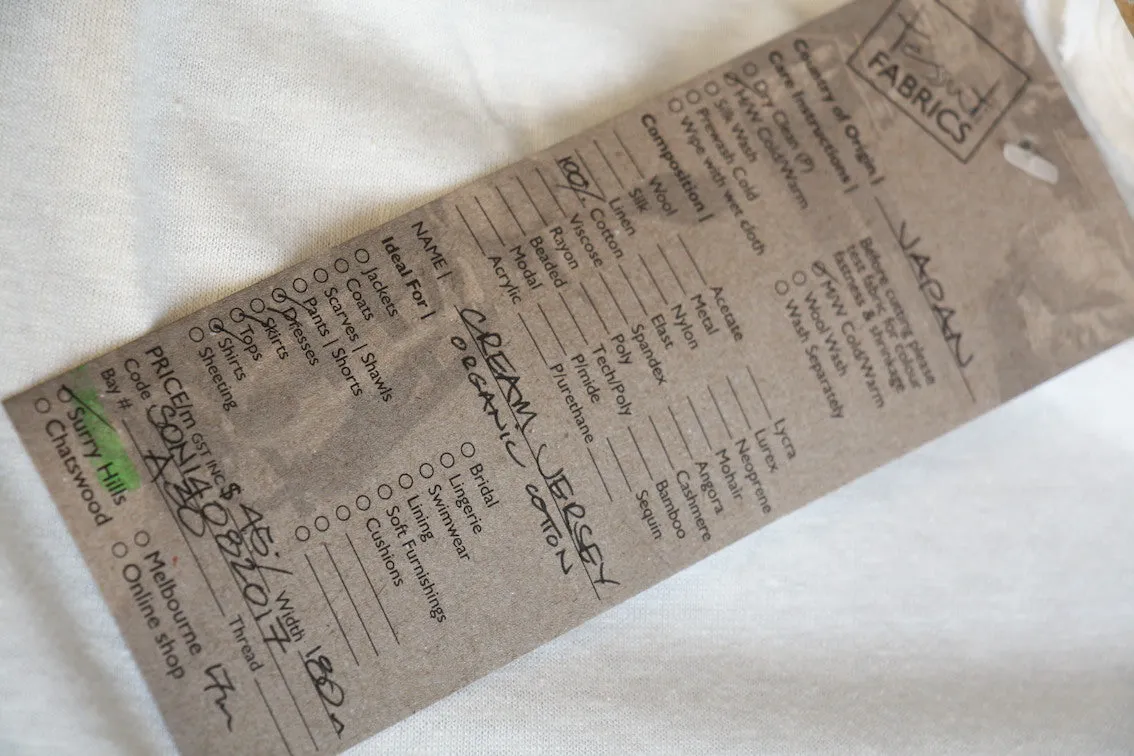 Tessuti
FABRICS
Country of Origin | JAPAN
Care Instructions |
Before cutting please
test fabric for colour
fastness & shrinkage
Dry Clean (P)
M/W Cold/Warm
Silk Wash
Prewash Cold
Wipe with wet cloth
M/W Cold/Warm
Wool Wash
Wash Separately
Composition |
Wool
Silk
Linen
100% Cotton
Viscose
Rayon
Beaded
Modal
Acrylic
Acetate
Metal
Nylon
Elast
Spandex
Poly
Tech/Poly
P/mide
P/urethane
Lycra
Lurex
Neoprene
Mohair
Angora
Cashmere
Bamboo
Sequin
NAME | CREAM JERSEY
ORGANIC COTTON
Ideal For |
Jackets
Coats
Scarves | Shawls
Pants | Shorts
Dresses
Skirts
Tops
Shirts
Sheeting
Bridal
Lingerie
Swimwear
Lining
Soft Furnishings
Cushions
PRICE/m GST INC $ 45/ Width
Code
Bay # A20 Thread
Surry Hills
Chatswood
Melbourne
Online shop
17m